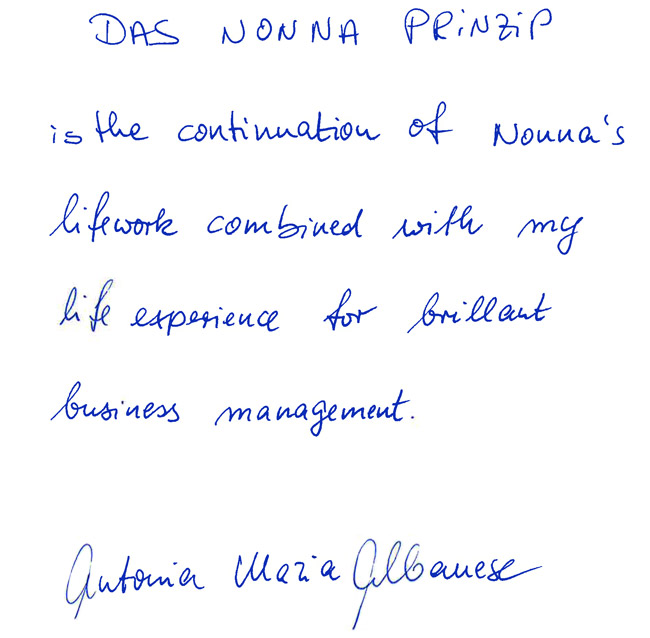 DAS NONNA PRiNZiP
is the continuation of Nonna's
lifework combined with my
life experience for brillant
business management.
Antonia Maria Albanese